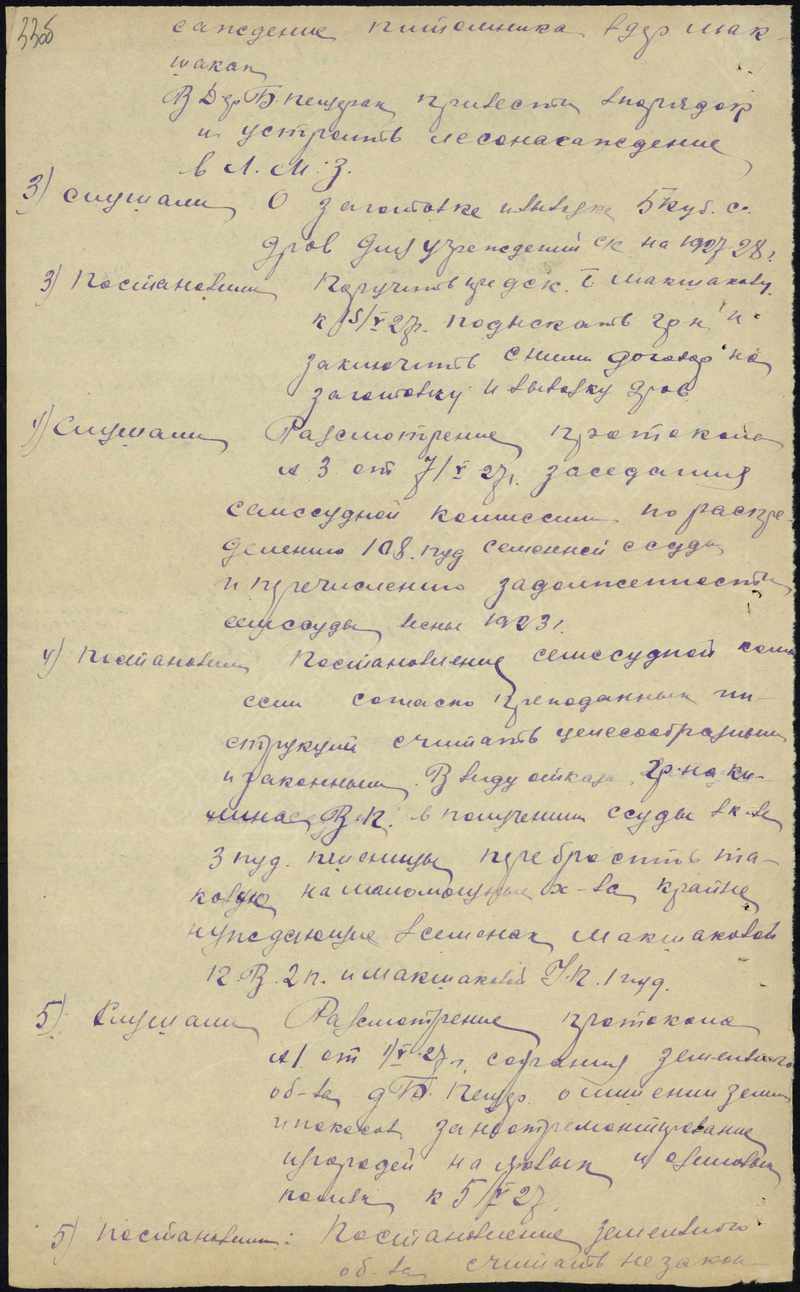 33об
саждение питомника в дер Мак-
шаках
В Дер Б Пещерах привести в порядок
и устроить лесонасаждение
в Л. М. З.
3) Слушали О заготовке и вывозке 5 куб. с.
дров для учреждений СК на 1927 28 г.
3) Постановили Поручить пред СК. т Макшакову
к 15/V 27 г. подыскать гр н. и
заключить с ними договор на
заготовку и вывозку дров
4) Слушали Рассмотрение протокола
№ 3 от 7/V 27 г. заседания
семссудной комиссии по распре-
делению 108 пуд семенной ссуды
и перечислению задолженности
семссуды весны 1923 г.
4) Постановили Постановление семссудной коми
ссии согласно преподанных ин-
струкций считать целесообразным
и законным. В виду отказа гр-на
В. П. в получении ссуды в к-ве
3 пуд. пшеницы перебросить та-
ковую на маломощные х-ва крайне
нуждающие в семенах Макшаковой
К. В. 2 п. и Макшаковой У. П. 1 пуд.
5) Слушали Рассмотрение протокола
№ 1 от 1/V 27 г. собрания земельного
об-ва д Б. Пещер. о лишении земли
и покосов за неотремонтирование
изгородей на яровых и озимовых
полях к 5/V 27.
5) Постановили: Постановление земельного
об-ва считать незакон-